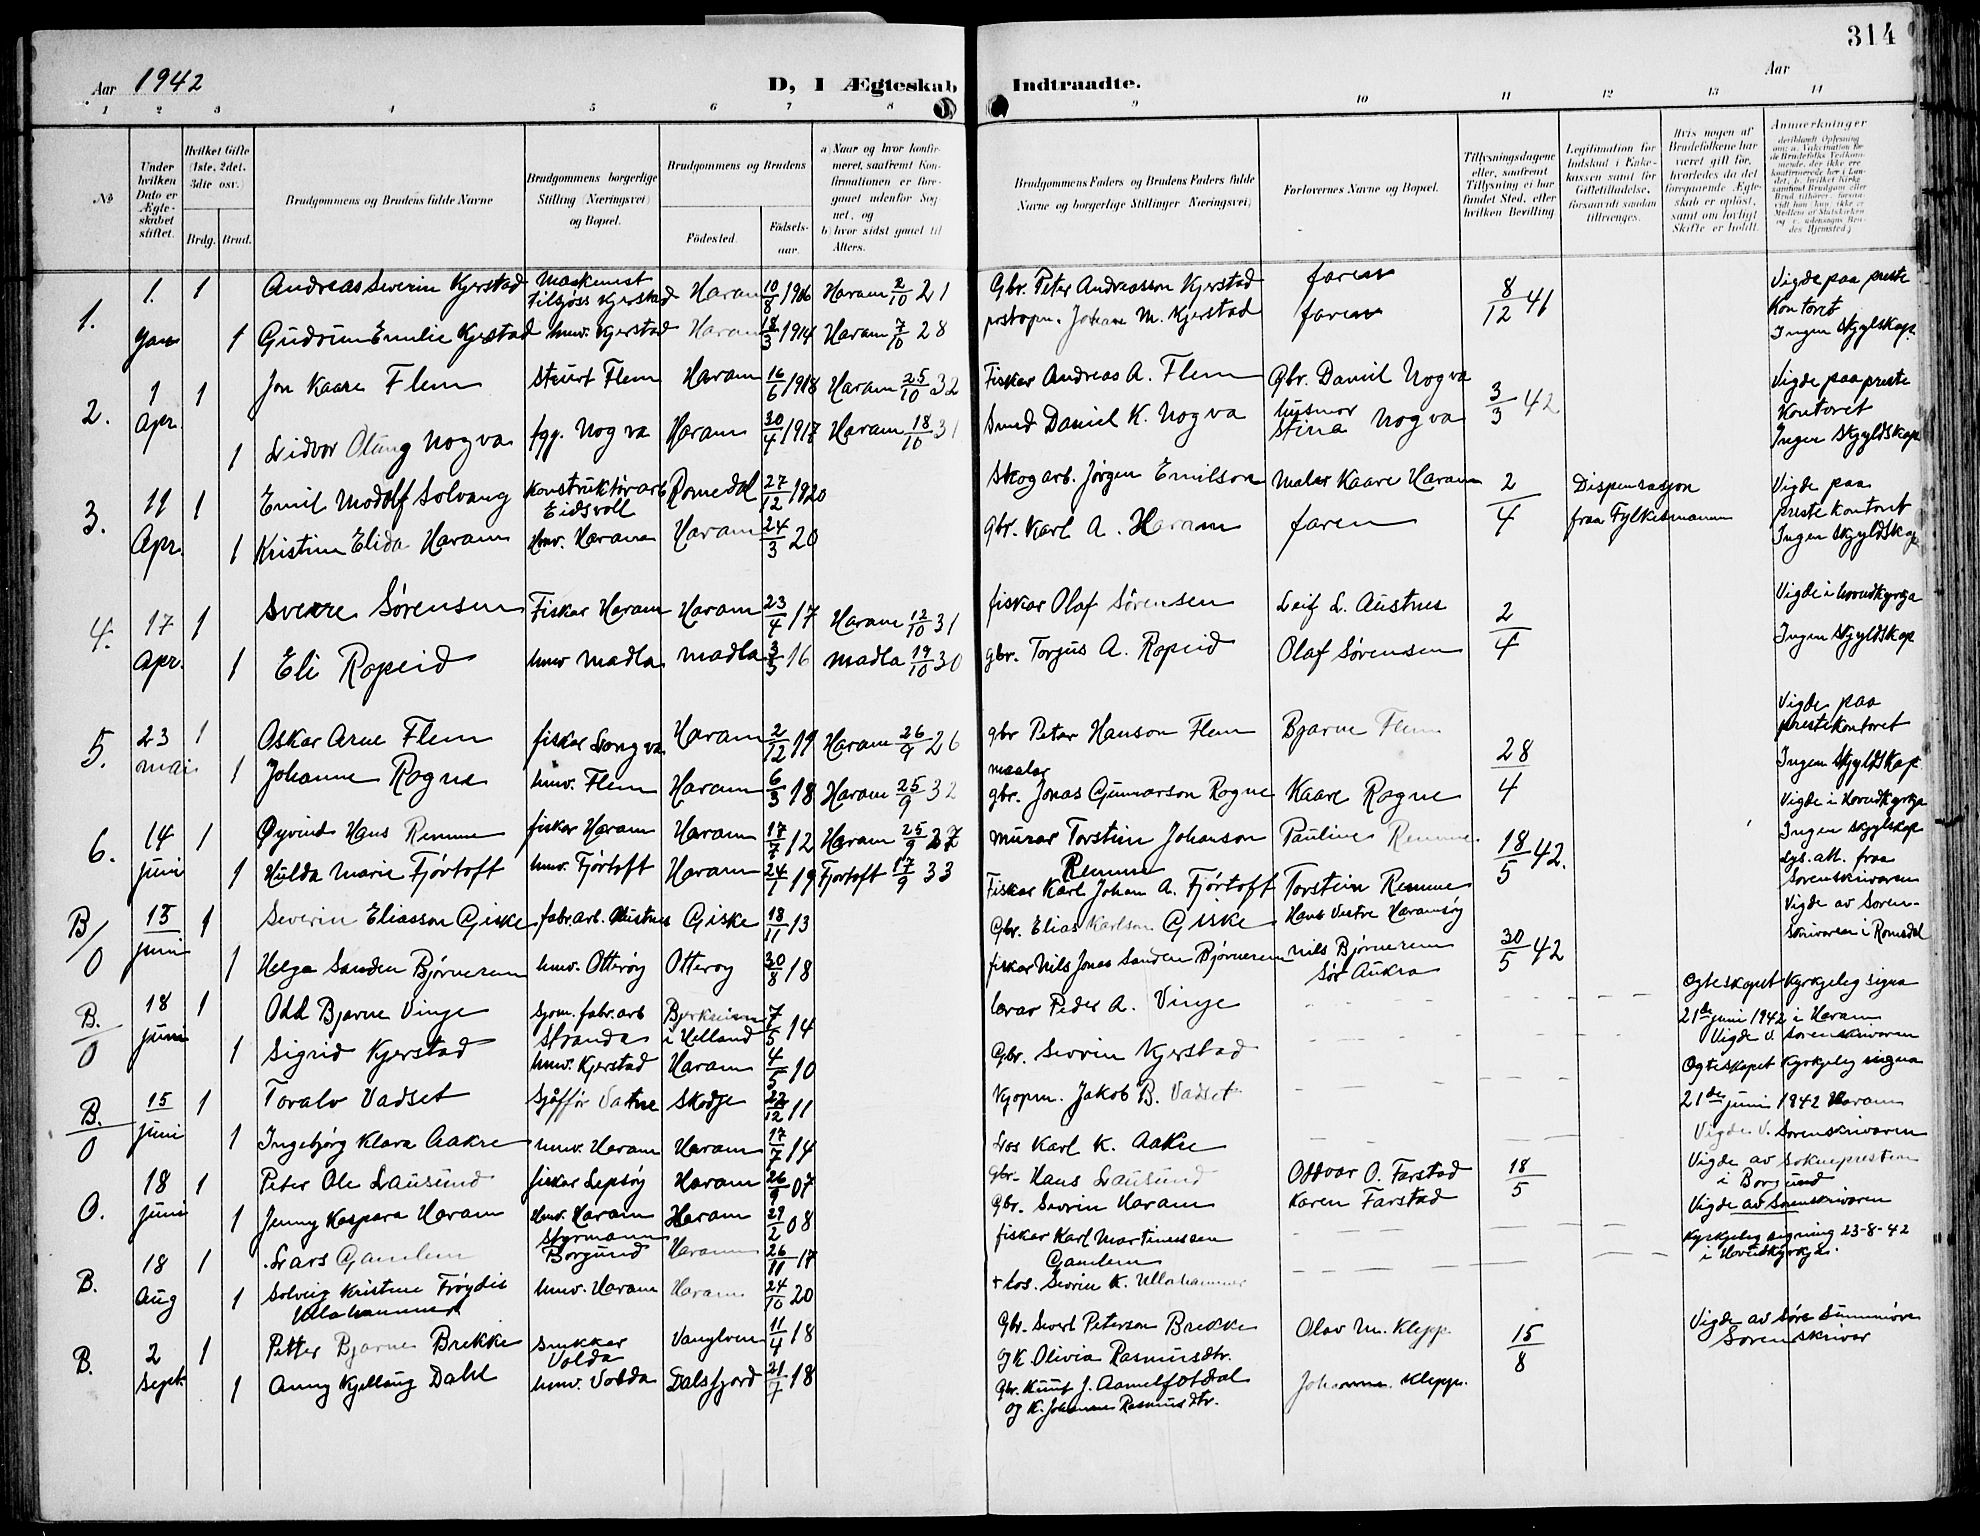 314
Aar 1942
D, I Ægteskab Indtraadte.
Aar
1 2 3 4 5 6 7 8 9 10 11 12 13 14
№
Under hvilken Dato er Ægteskabet stiftet.
Hvilket Gifte (1ste, 2det, 3die osv.)
Brdg. Brud.
Brudgommens og Brudens fulde Navne
Brudgommens borgerlige Stilling (Næringsvei) og Bopæl.
Brudgommens og Brudens
Fødested. Fødselsaar.
a) Naar og hvor konfirmeret, saafremt Konfirmationen er foregaaet udenfor Sognet, og
b) hvor sidst gaaet til Alters.
Brudgommens Faders og Brudens Faders fulde Navne og borgerlige Stillinger Næringsvei)
Forlovernes Navne og Bopæl.
Tillysningsdagene eller, saafremt Tillysning ei har fundet Sted, efter hvilken Bevilling
Legitimation for Indskud i Enkekassen samt for Giftetilladelse, forsaavidt saadan tiltrænges.
Hvis nogen af Brudefolkene har været gift før, hvorledes da det foregaaende Ægteskab er opløst, samt om lovligt Skifte er holdt.
Anmerkninger
1. 1. 1 Andreas Severin Kjerstad Maskinist tilsjøss Kjerstad Haram 10/8 1906 Haram 2/10 21 Gbr. Peter Andreasson Kjerstad faren 8/12 41 Vigde paa preste
Jan 1 Gudrun Emilie Kjerstad hmv. Kjerstad Haram 18/3 1914 Haram 7/10 28 postopn. Johan M. Kjerstad faren Kontoret
Ingen skyldskap.
2. 1 1 Jon Kaare Flem Stuert Flem Haram 16/6 1918 Haram 25/10 32 Fiskar Andreas A. Flem Gbr. Daniel Nogva 3/3 42 Vigde paa preste
Apr. 1 Lidvor Olaug Nogva fgy. Nogva Haram 30/4 1917 Haram 18/10 31 Smed Daniel K. Nogva husmor Stina Nogva Kontoret
Ingen skyldskap
3. 11 1 Emil Modolf Solvang Konstruktörarb Eidsvoll Romedal 27/12 1920 Skogarb. Jørgen Emilson Malar Kaare Haram 2/4 Dispensasjon Vigde paa
Apr. 1 Kristine Elida Haram Hmv. Haram Haram 24/3 20 gbr. Karl A. Haram faren fraa Fylkesmannen prestekontoret
Ingen skyldskap
4. 17 1 Sverre Sørensen Fiskar Haram Haram 23/4 17 Haram 12/10 31 fiskar Olaf Sørensen Leif L. Austnes 2/4 Vigde i hovudkyrkja
Apr. 1 Eli Ropeid hmv Madla Madla 3/3 16 Madla 19/10 30 gbr. Torgus A. Ropeid Olaf Sørensen Ingen skyldskap
5. 23 1 Oskar Arne Flem fiskar Longva Haram 2/12 19 Haram 26/9 26 gbr Peter Hanson Flem Bjarne Flem 28/4 Vigde paa prestekontoret
mai 1 Johanne Rogne hmv. Flem Haram 6/3 18 Haram 25/9 32 maalar gbr. Jonas Gunnarson Rogne Kaare Rogne Ingen skyldskap
6. 14 1 Øyvind Hans Remme fiskar Haram Haram 17/7 12 Haram 25/9 27 Murar Torstein Johanson Remme Pauline Remme 18/5 42. Vigde i hovudkyrkja
Juni 1 Hulda Marie Fjørtoft hmv. Fjørtoft Haram 24/1 19 Fjørtoft 17/9 33 Fiskar Karl Johan A. Fjørtoft Torstein Remme Ingen skyldskap
Lys. att. fraa Sorenskrivaren
B/O 15 1 Severin Eliasson Giske fabr.arb. Austnes Giske 18/11 13 Gbr. Elias Karlson Giske Hans Vestre Haramsøy 30/5 42 Vigde av Soren-
Juni 1 Helga Sanden Bjørnerem hmv. Otterøy Otterøy 30/8 18 fiskar Nils Jonas Sanden Bjørnerem Nils Bjørnerem Sør Aukra skrivaren i Romsdal
B./O 18 1 Odd Bjarne Vinje Sjom. fabr.arb Stranda Bjerkheim i Helland 7/5 14 lærar Peder A. Vinje Ogteskapet kyrkjeleg signa
Juni 1 Sigrid Kjerstad hmv. Kjerstad Haram 4/5 10 Gbr. Severin Kjerstad 21de juni 1942 i Haram
Vigde v. Sorenskrivaren
B./O 15 1 Toralv Vadset Sjåffør Vatne Skodje 22/12 11 Kjøpm. Jakob B. Vadset Ogteskapet kyrkjeleg signa
Juni 1 Ingebjørg Klara Aakre hmv. Haram Haram 17/7 14 Los Karl K. Aakre 21de juni 1942 Haram
Vigde v. Sorenskrivaren
O. 18 1 Peter Ole Lausund fiskar Lepsøy Haram 26/9 07 gbr. Hans Lausund Oddvar O. Farstad 18/5 Vigde av Sokneprestien i Borgund
Juni 1 Jenny Kaspara Haram hmv. Haram Haram 29/2 08 gbr. Severin Haram Karen Farstad Vigde av Sorenskrivaren
B. 18 1 Lars Gamlem Styrmann Borgund Haram 26/11 17 fiskar Karl Martinussen Gamlem Kyrkjeleg signing 23-8-42 i Hovudkyrkja.
Aug 1 Solveig Kristine Frøydis Ullahammer hmv. Haram Haram 24/10 20 + los. Severin K. Ullahammer
B. 2 1 Petter Bjarne Brekke Snekker Volda Vanylven 11/4 18 Gbr. Sivert Peterson Brekke og K. Olivia Rasmusdtr. Olav M. Klepp. 15/8 Vigde av Søre Sunnmøre Sorenskrivar
Sept. 1 Anny Kjellaug Dahl hmv. Volda Dalsfjord 21/7 18 Gbr. Knut J. Aamelfotdal og K. Johanne Rasmusdtr. Johanne Klepp.